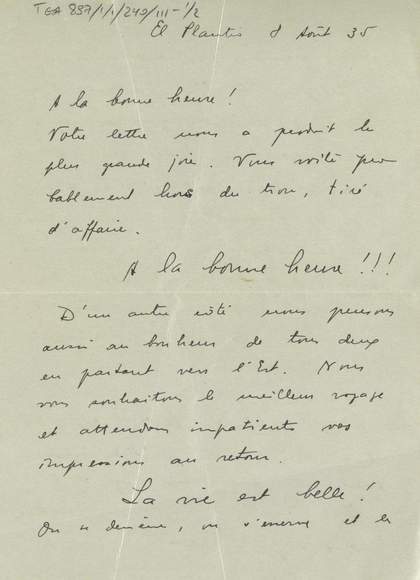 TEA 837/1/1/249/III-1/2
El Plantio 8 Août 35
A la bonne heure !
Votre lettre nous a produit la
plus grande joie. Vous voilà pro
bablement hors du trou, tiré
d'affaire.
A la bonne heure !!!
D'un autre côté nous pensons
aussi au bonheur de tous deux
en partant vers l'Est. Nous
vous souhaitons le meilleur voyage
et attendons impatients vos
impressions au retour.
La vie est belle !
On se démène, on s'énerve et